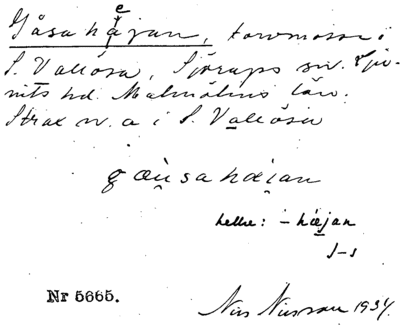 Gåsahäjan, torvmosse i
S. Vallösa, Sjörups sn. Lju-
nits hd. Malmöhus län.
Strax n. a i S. Vallösa
gæu̯sahæi̯an
hellre: – hæjan
J–s
Nr 5665.
Nils Nilsson 1934.